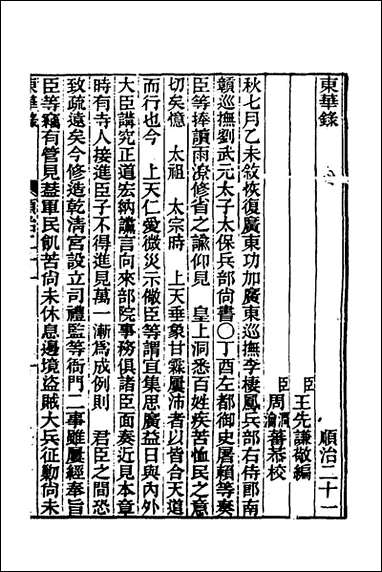 東華錄　順治二十一
臣王先謙敬編
臣周潤蕃　周瀹蕃恭校
秋七月乙未敘恢復廣東功加廣東巡撫李棲鳳兵部右侍郎南
贛巡撫劉武元太子太保兵部尚書〇丁酉左都御史屠賴等奏
臣等捧讀雨潦修省之諭仰見　皇上洞悉百姓疾苦恤民之意
切矣憶　太祖　太宗時　上天垂象甘霖屢沛者以皆合天道
而行也今　上天仁愛微災示儆臣等謂宜集思廣益日與內外
大臣講究正道宏納讜言向來部院事務俱諸臣面奏近見本章
時有寺人接進臣子不得進見萬一漸爲成例則　君臣之間恐
致疏遠矣今修造乾清宮設立司禮監等衙門二事雖屢經奉旨
臣等竊有管見蓋軍民飢苦尚未休息邊境盜賊大兵征勦尚未
東華錄　順治二十一